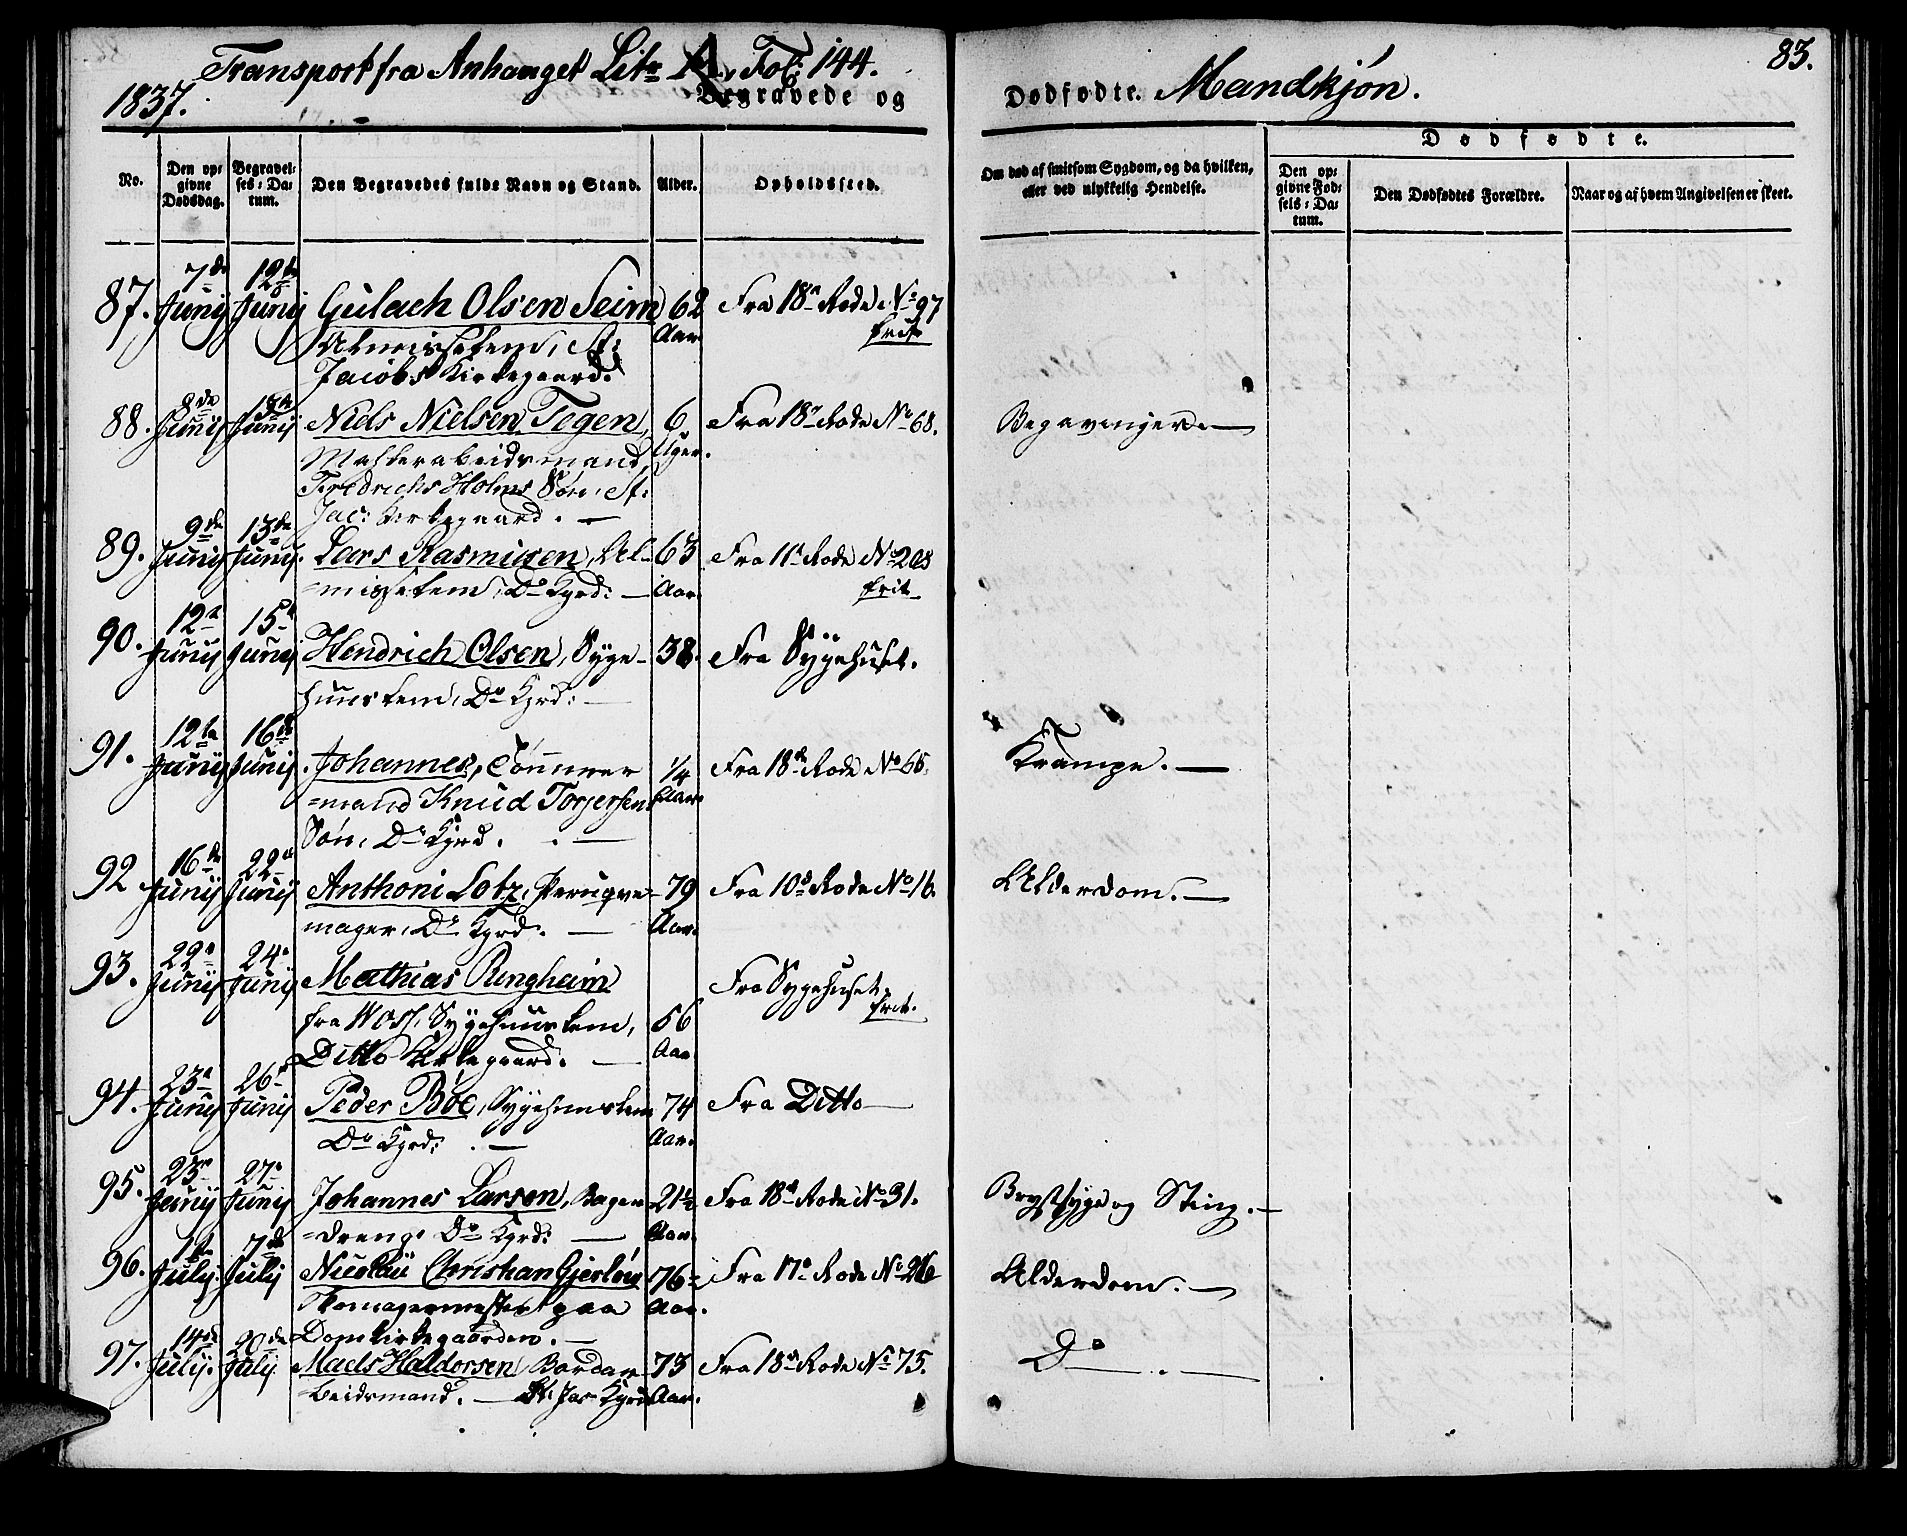 Transport fra Anhanget Litr A, Fol: 144.
1837.
Begravede og
Dødfødte. Mandkjøn.
83.
No.
Den opgivne Dødsdag.
Begravelses-Datum.
Den Begravedes fulde Navn og Stand.
Alder.
Opholdssted.
Om død af smitsom Sygdom, og da hvilken, eller ved ulykkelig Hendelse.
Dødfødte.
Den opgivne Fødsels-Datum.
Den Dødfødtes Forældre.
Naar og af hvem Angivelsen er skeet.
87. 7de Junij 12te Junij Gulach Olsen Seim 62 Aar Fra 18n Rode No 97 frit
Almisselem, St:
Jacobs Kirkegaard.
88. 8de Junij 13de Junij Niels Nielsen Tegen, 6 Uger. Fra 18n Rode No 68. Begavinger. —
Fredrichs Holms Søn, St:
Jac: Kirkegaard. —
89. 9de Junij 13de Junij. Lars Rasmusen, Al- 63 Aar. Fra 11n Rode No 208 frit
=misselem, Do Kgrd: —
90. 12n Junij 15n Junij Hendrich Olsen, Syge- 38. Fra Sygehuset.
huuslem, Do Kgrd: —
91. 12te Junij 16de Junij Johannes, Tømmer 1/4 Aar. Fra 18de Rode No 66. Krampe. —
=mand Knud Torjersens
Søn, Do Kgrd. —
92 16de Junij 22n Junij Anthoni Lotz, Peruqve- 79 Aar. Fra 10de Rode No 16. Alderdom. —
mager, Do Kgrd. —
93. 22n Junij 24n Junij Mathias Ringheim Fra Sygehuset. frit.
fra Woss, Sygehuuslem, 56 Aar
Ditto Kirkegaard. —
94. 23n Junij 26n Junij Peder Böe, Sygehuuslem 74 Aar. Fra Ditto —
Do Kgrd: —
95. 23n Junij 27n Junij Johannes Larsen, Bager 21½ Aar. Fra 18de Rode No 31. Brystsyge og Sting. —
=dreng. Do Kgrd: —
96. 1te Julij. 7de Julij Nicolaü Christian Gjerløw 76 Aar. Fra 17n Rode No 26 Alderdom. —
Skomagermester paa
Domkirkegaarden. —
97. 14de Julij. 20de Julij Mads Haldorsen, Bordar 73 Aar. Fra 18de Rode No 75. Do —
beidsmand. — St: Jac Kgrd